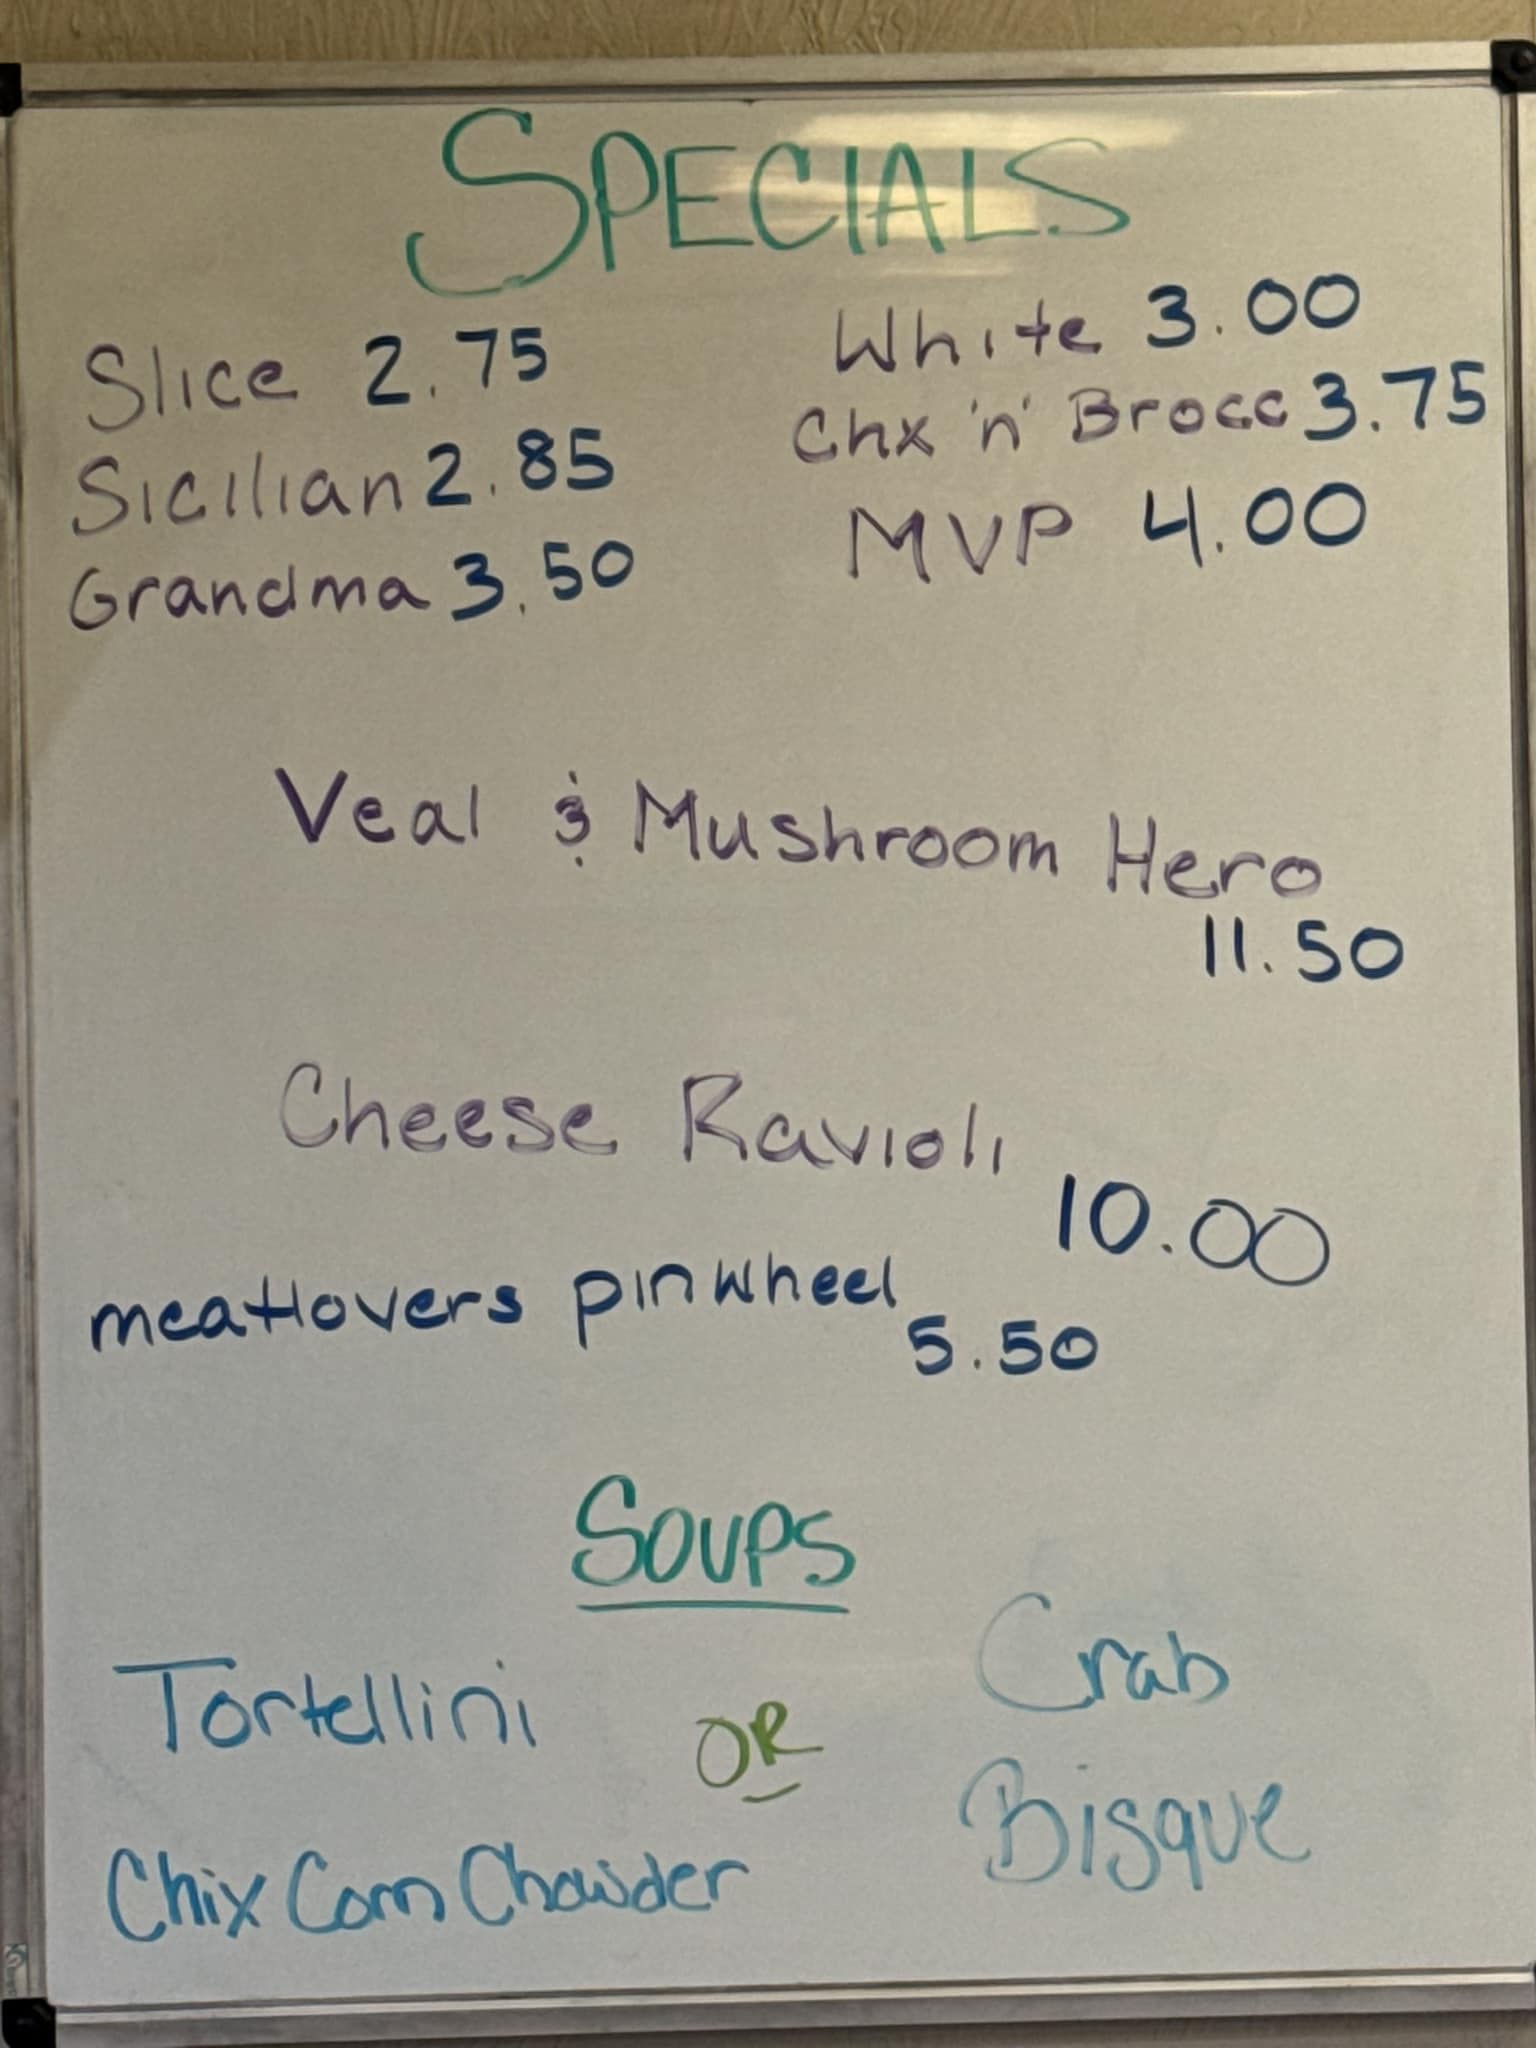 SPECIALS
Slice 2.75
Sicilian 2.85
Grandma 3.50
White 3.00
Chx 'n' Brocc 3.75
MVP 4.00
Veal & Mushroom Hero
11.50
Cheese Ravioli
10.00
meatlovers pinwheel
5.50
SOUPS
Tortellini
OR
Crab
Bisque
Chix Corn Chowder